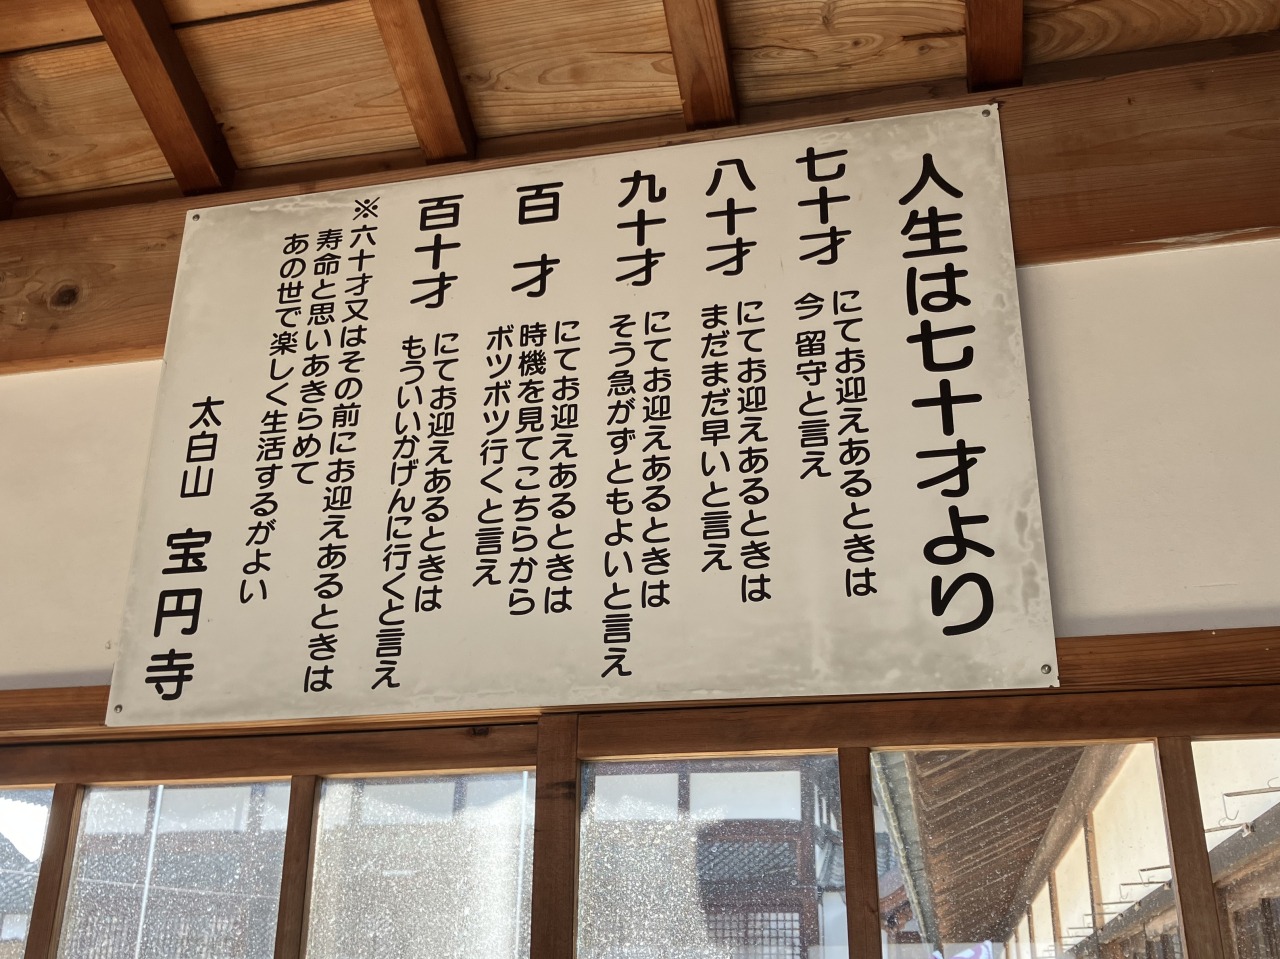 人生は七十才より
七十才
にてお迎えあるときは
今 留守と言え
八十才
にてお迎えあるときは
まだまだ早いと言え
九十才
にてお迎えあるときは
そう急がずともよいと言え
百才
にてお迎えあるときは
時機を見てこちらから
ボツボツ行くと言え
百十才
にてお迎えあるときは
もういいかげんに行くと言え
※六十才又はその前にお迎えあるときは
寿命と思いあきらめて
あの世で楽しく生活するがよい
太白山 宝円寺